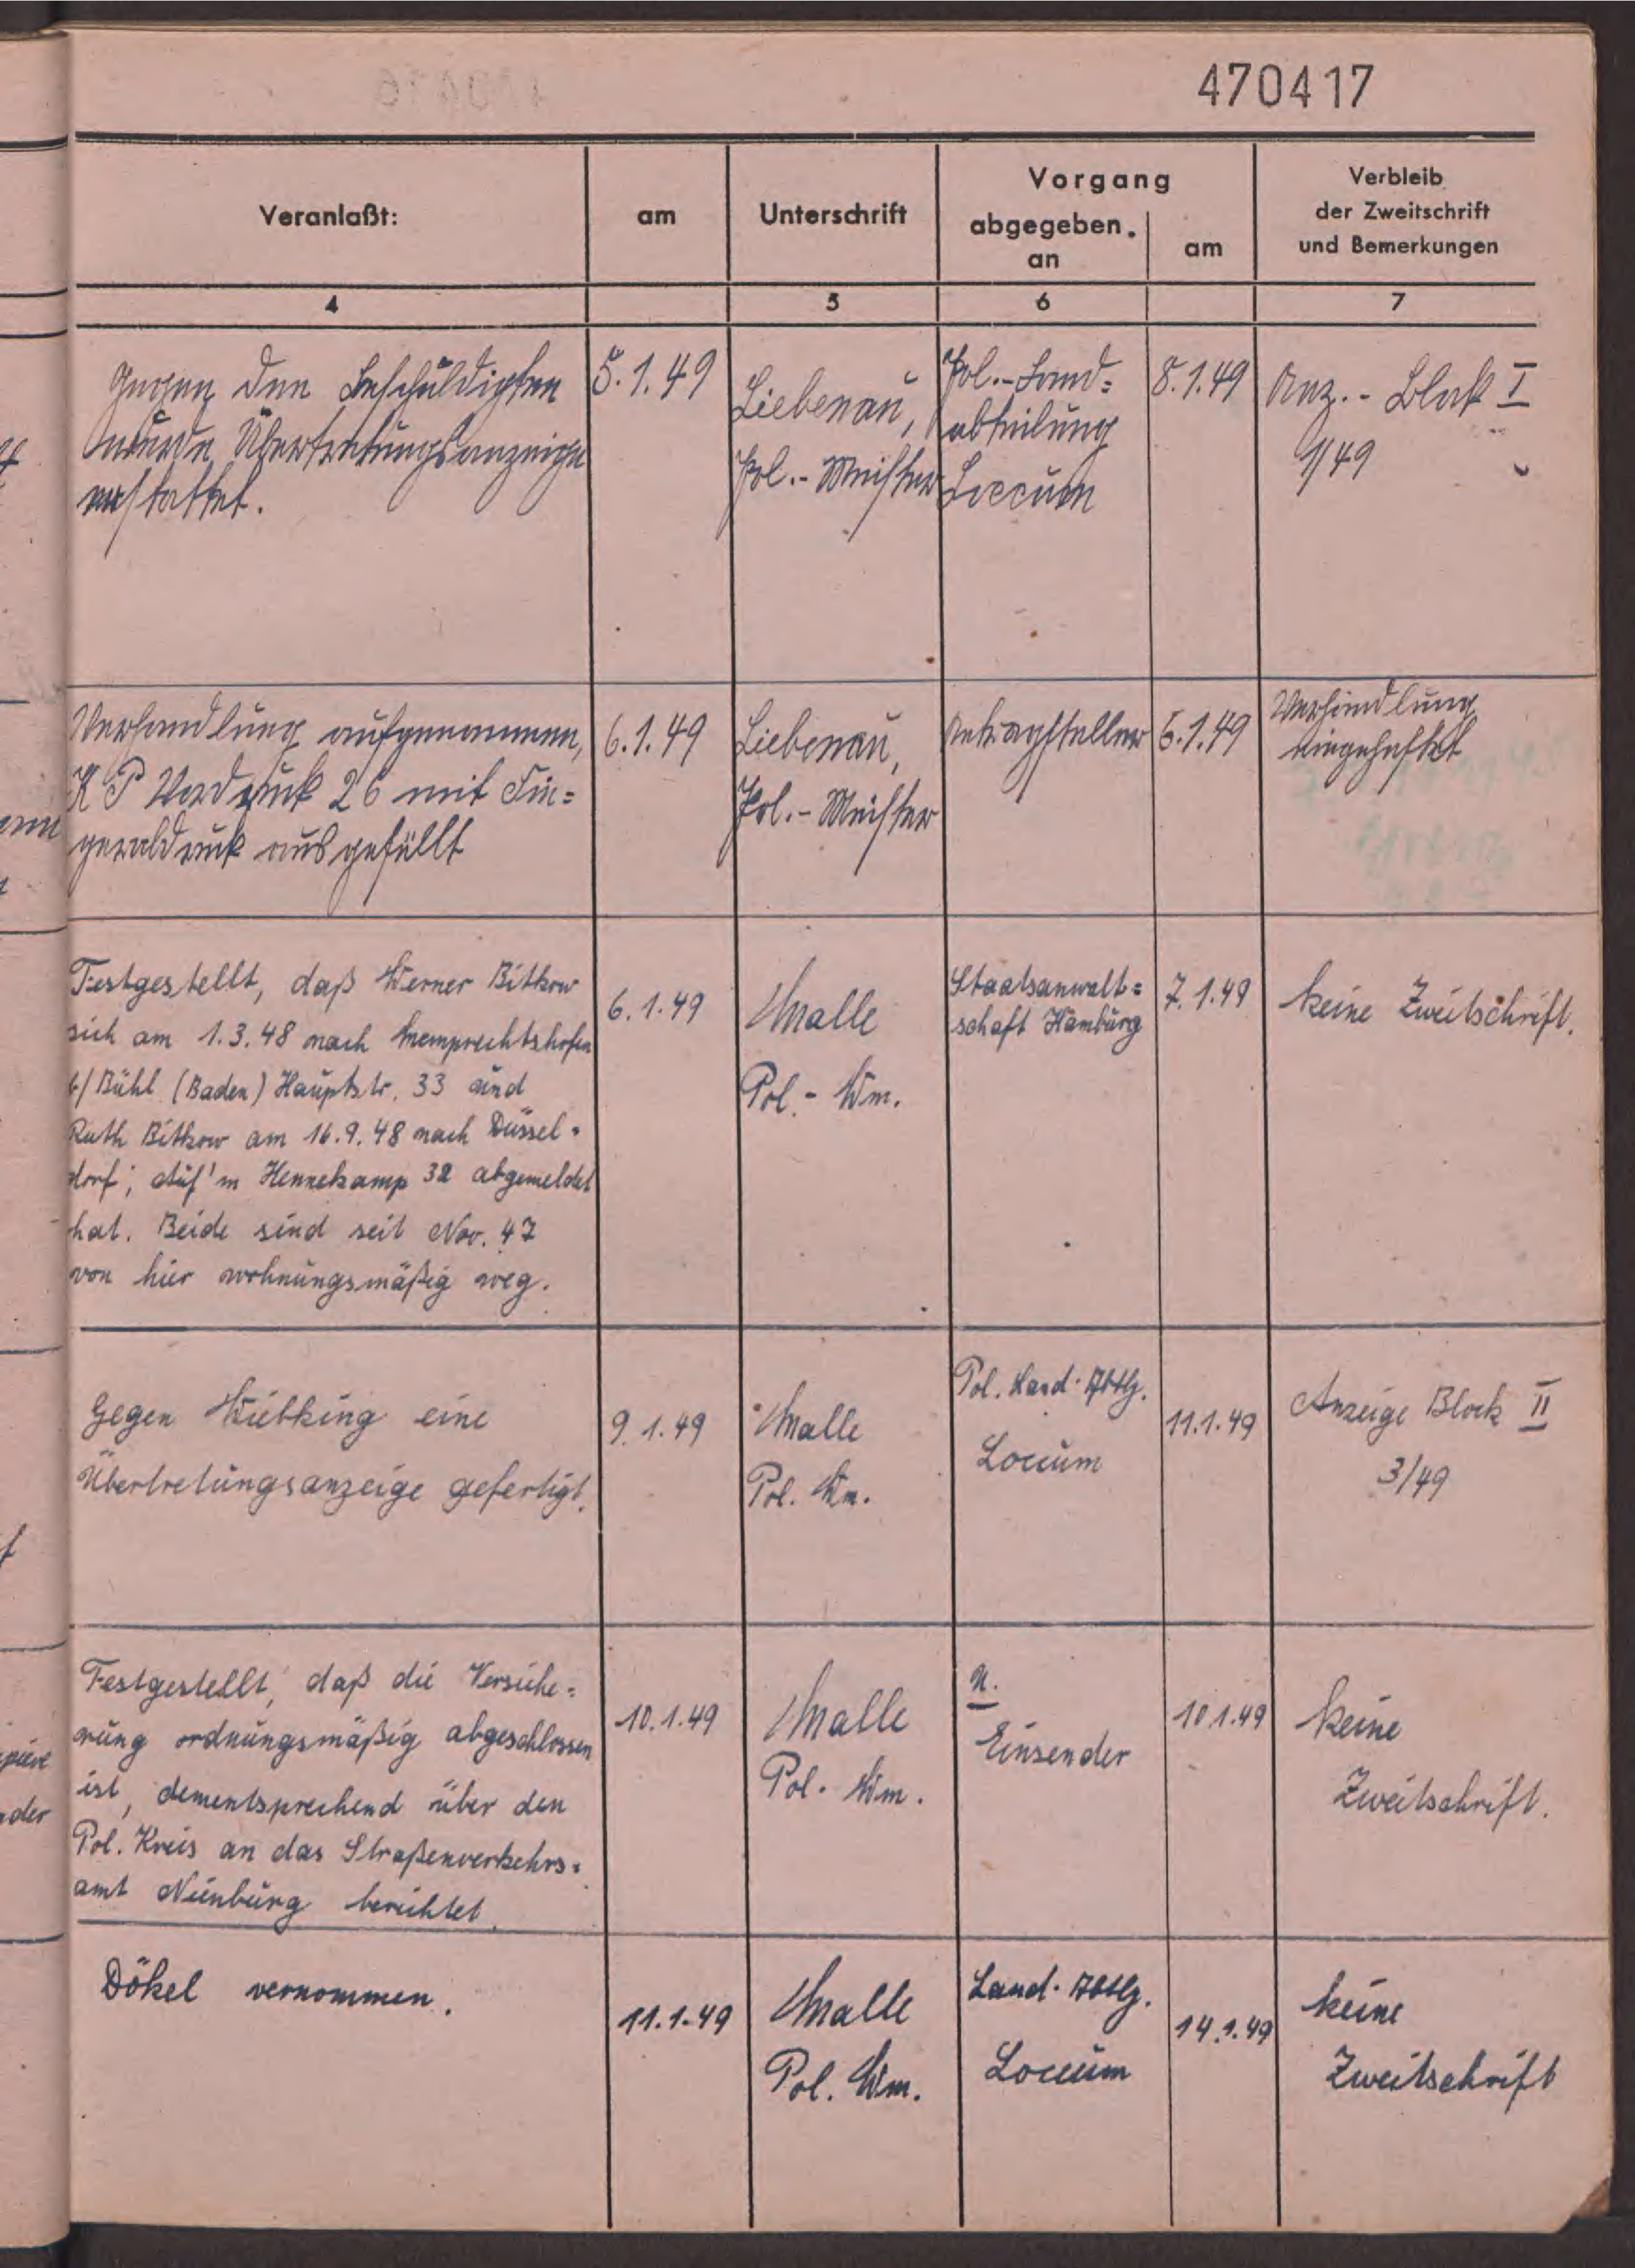 470417
Veranlaßt:
am
Unterschrift
Vorgang
abgegeben.
an
am
Verbleib
der Zweitschrift
und Bemerkungen
4
5
6
7
Gegen den Beschuldigten
wurde Übertretungsanzeige
erstattet.
5.1.49
Liebenau,
Pol.-Meister
Pol.-Land=
abteilung
Loccum
8.1.49
Anz.-Block I
1/49
Verhandlung aufgenommen,
K P Vordruck 26 mit Fin=
gerabdruck ausgefüllt
6.1.49
Liebenau,
Pol.-Meister
Antragsteller
6.1.49
Verhandlung
eingeheftet
Festgestellt, daß Werner Bitkow
sich am 1.3.48 nach Memprechtshofen
b/Bühl (Baden) Hauptstr. 33 und
Ruth Bitkow am 16.9.48 nach Düssel=
dorf, Auf'm Hennekamp 32 abgemeldet
hat. Beide sind seit Nov. 47
von hier wohnungsmäßig weg.
6.1.49
Malle
Pol.-Wm.
Staatsanwalt=
schaft Hamburg
7.1.49
keine Zweitschrift.
Gegen Wiebking eine
Übertretungsanzeige gefertigt.
9.1.49
Malle
Pol. Wm.
Pol. Land-Abtlg.
Loccum
11.1.49
Anzeige Block II
3/49
Festgestellt, daß die Versiche=
rung ordnungsmäßig abgeschlossen
ist, dementsprechend über den
Pol. Kreis an das Straßenverkehrs=
amt Nienburg berichtet.
10.1.49
Malle
Pol. Wm.
U.
Einsender
10.1.49
keine
Zweitschrift.
Dökel vernommen.
11.1.49
Malle
Pol. Wm.
Land-Abtlg.
Loccum
14.1.49
keine
Zweitschrift